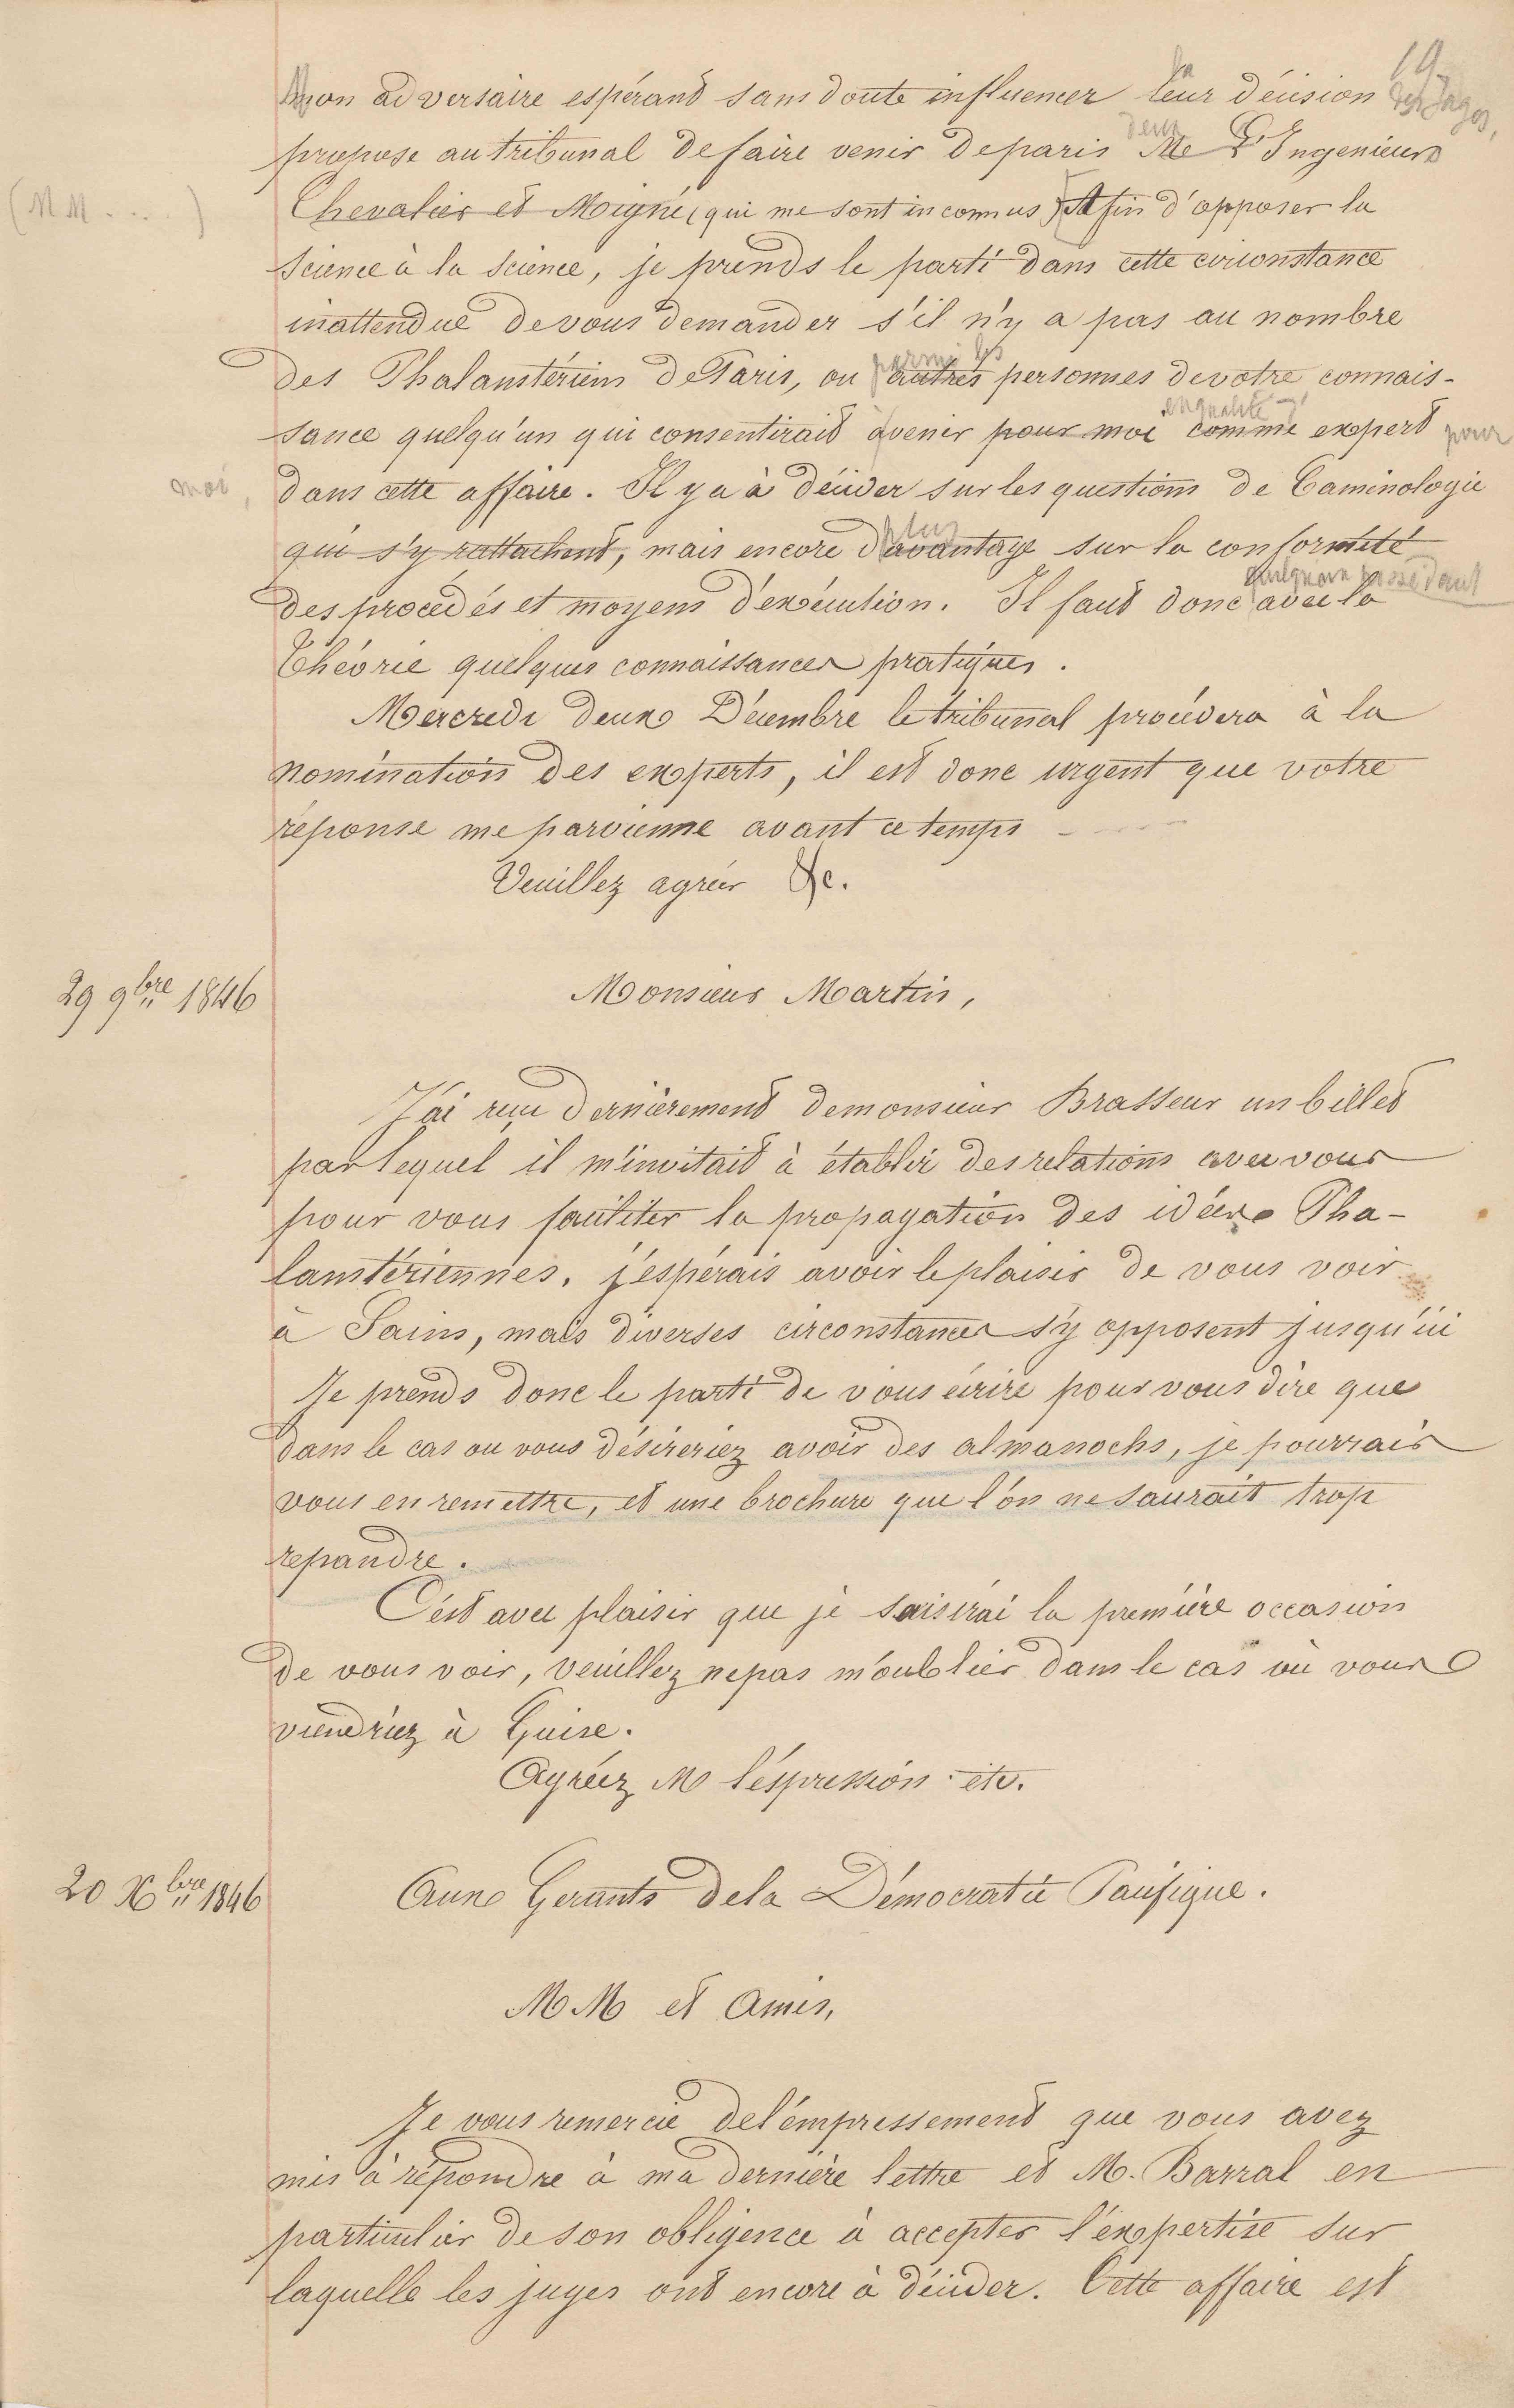 19
Mon adversaire espérant sans doute influencer leur décision
la
des Juges,
propose au tribunal de faire venir de paris Me Ingenieurs
deux
(MM... )
Chevalier et Moigné (qui me sont inconnus) Afin d'opposer la
Science à la Science, je prends le parti dans cette circonstance
inattendue de vous demander s'il n'y a pas au nombre
des Phalanstériens de Paris, ou autres personnes de votre connais-
parmi les
sance quelqu'un qui consentirait à venir pour moi comme expert
en qualité d'
pour
moi,
dans cette affaire. Il y a à décider sur les questions de Caminologie
qui s'y rattachent, mais encore davantage sur la conformité
plus
des procédés et moyens d'exécution. Il faut donc avec la
quelqu'un possédant
Théorie quelques connaissances pratiques.
Mercredi deux Décembre le tribunal procédera à la
nomination des experts, il est donc urgent que votre
réponse me parvienne avant ce temps
Veuillez agréer &c.
29 9bre 1846
Monsieur Martin,
J'ai reçu dernièrement de monsieur Brasseur un billet
par lequel il m'invitait à établir des relations avec vous
pour vous faciliter la propagation des idées Pha-
lanstériennes. j'espérais avoir le plaisir de vous voir
à Sains, mais diverses circonstances s'y opposent jusqu'ici
Je prends donc le parti de vous écrire pour vous dire que
dans le cas ou vous désireriez avoir des almanachs, je pourrais
vous en remettre, et une brochure que l'on ne saurait trop
repandre.
C'est avec plaisir que je saisirai la première occasion
de vous voir, veuillez ne pas m'oublier dans le cas où vous
viendriez à Guise.
Agréez M l'expression etc.
20 Xbre 1846
Aux Gerants de la Démocratie Pacifique.
MM et Amis,
Je vous remercie de l'empressement que vous avez
mis à répondre à ma dernière lettre et M. Barral en
particulier de son obligence à accepter l'expertise sur
laquelle les juges ont encore à décider. Cette affaire est